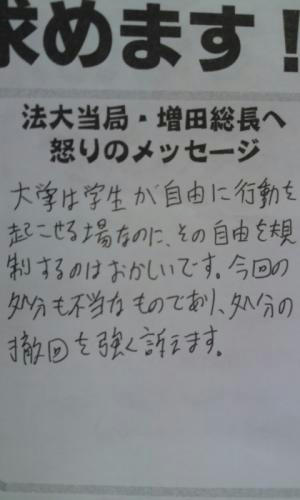 求めます!
法大当局・増田総長へ
怒りのメッセージ
大学は学生が自由に行動を
起こせる場なのに、その自由を規
制するのはおかしいです。今回の
処分も不当なものであり、処分の
撤回を強く訴えます。